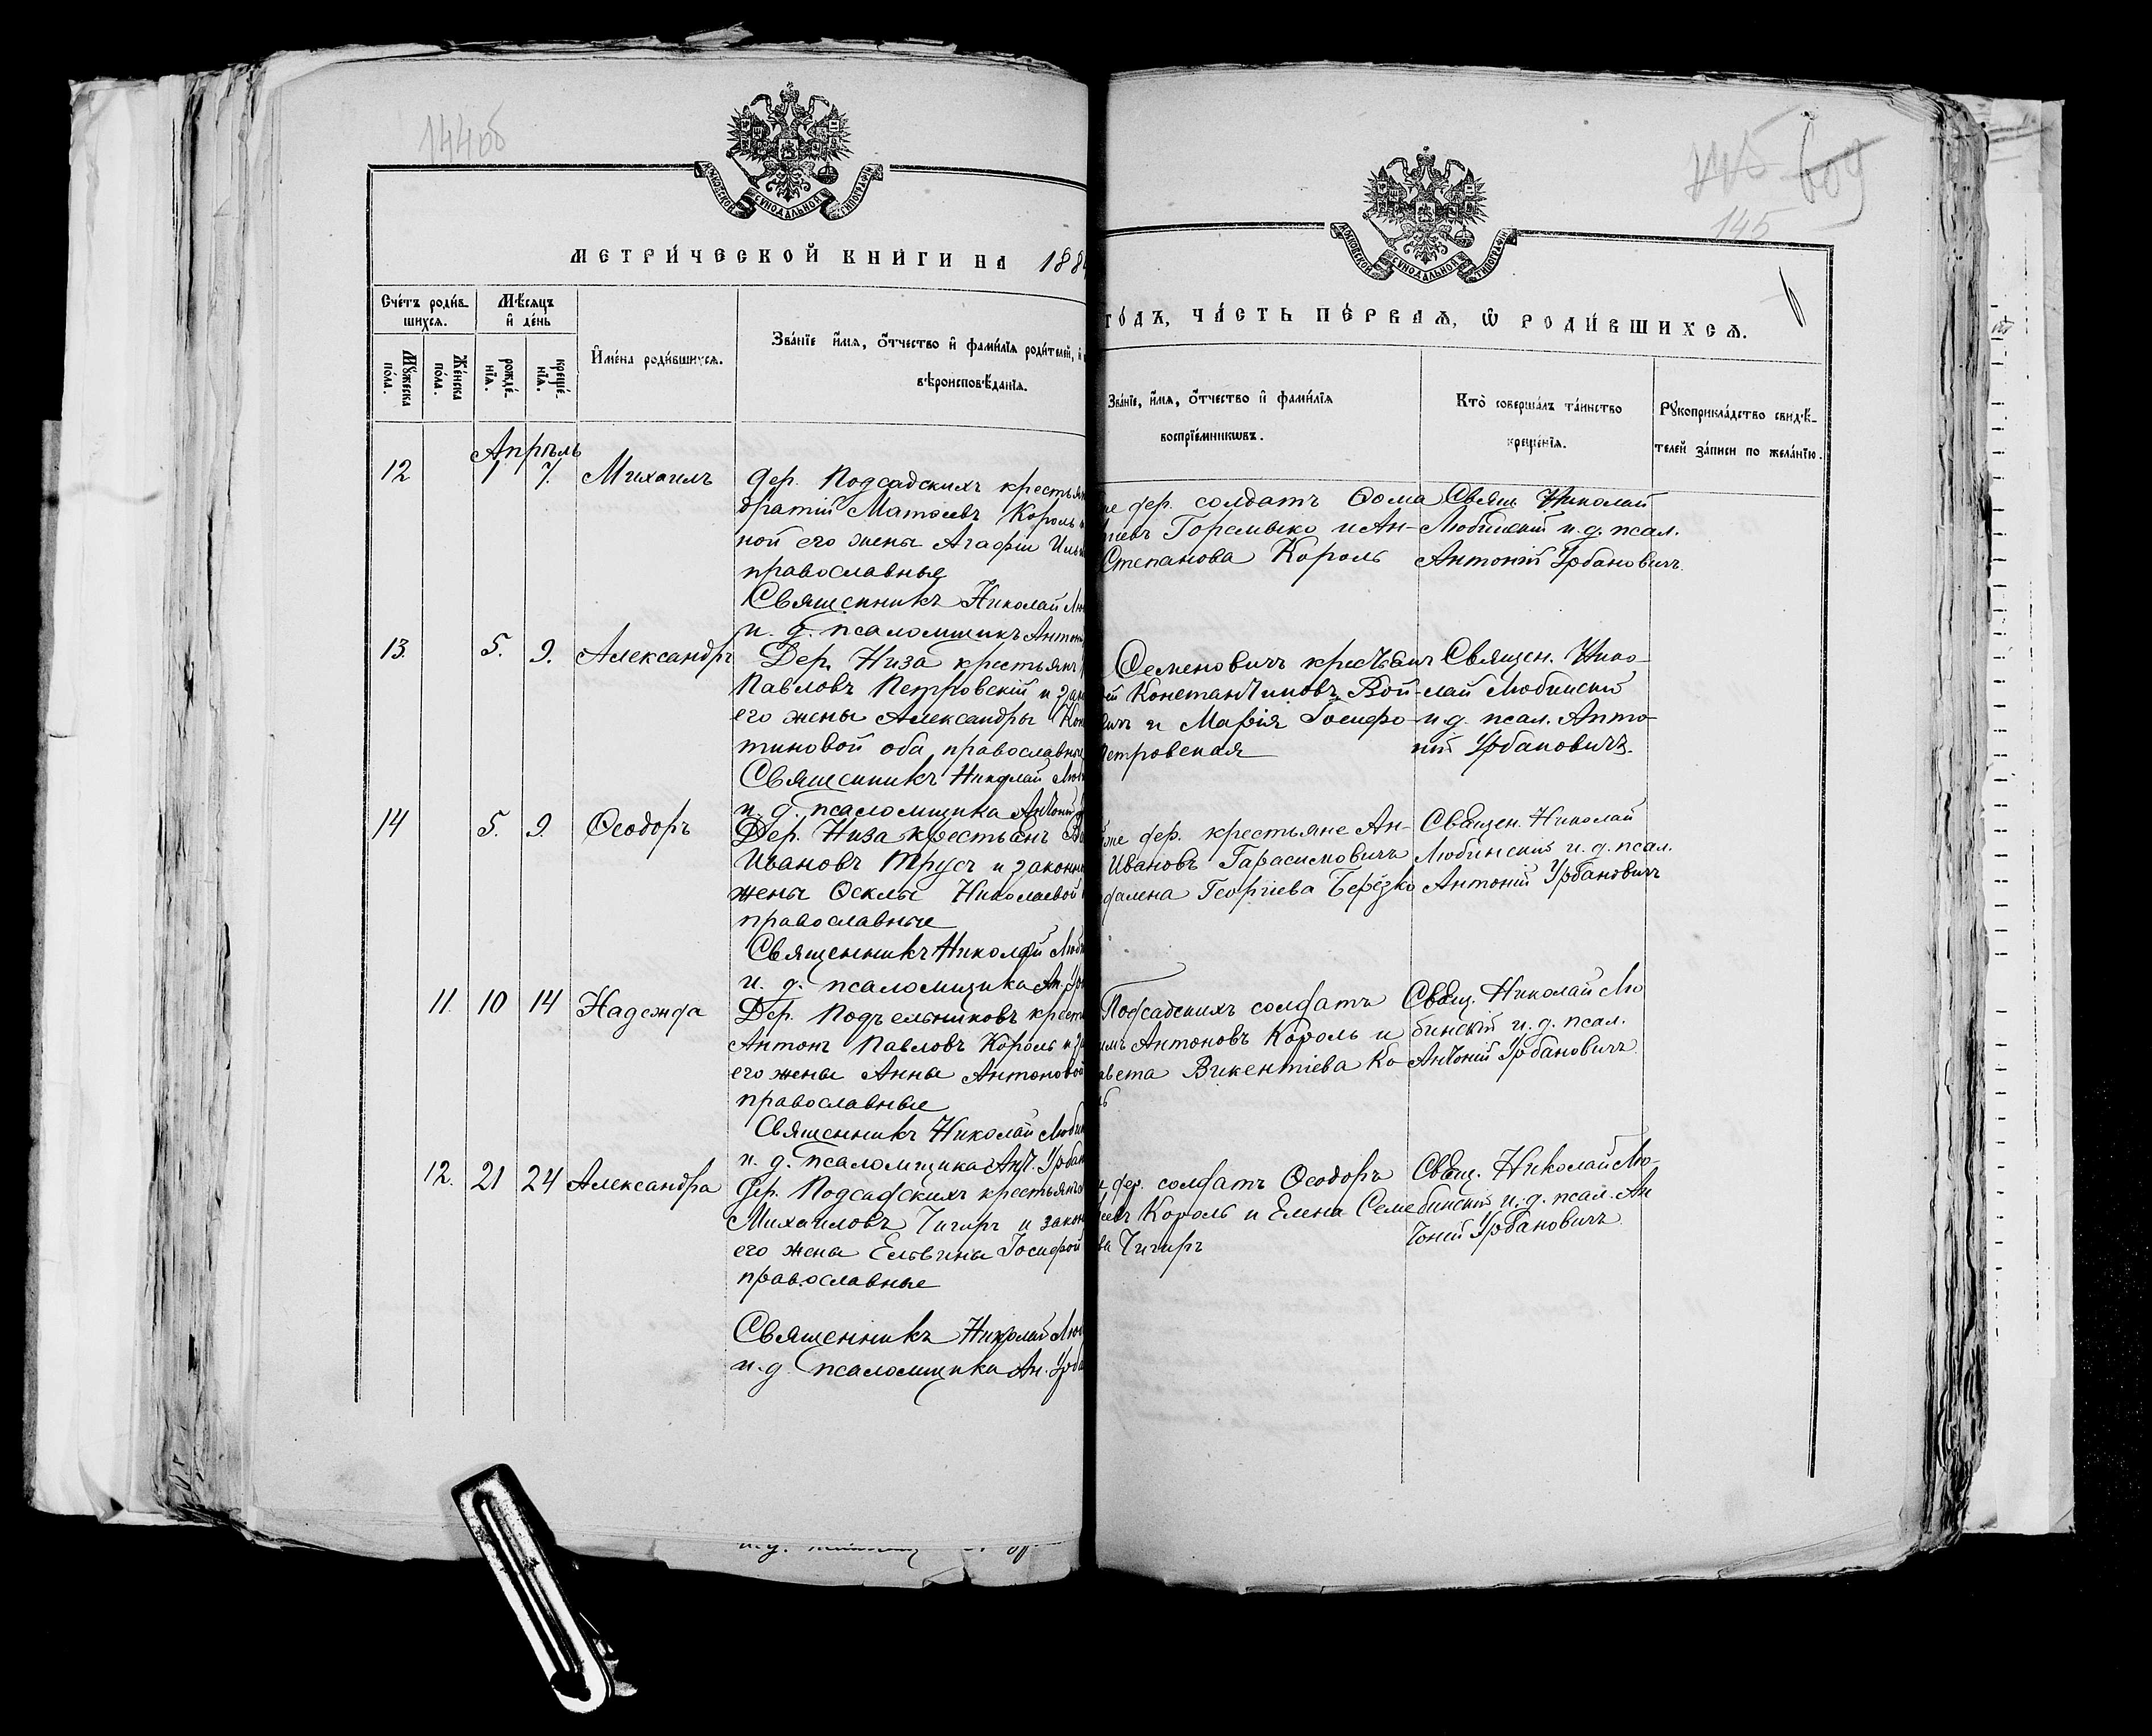 144об
145
609
145
МОСКОВСКОЙ СѴНОДАЛЬНОЙ ТИПОГРАФІИ
МОСКОВСКОЙ СѴНОДАЛЬНОЙ ТИПОГРАФІИ
МЕТРИ́ЧЕСКОЙ КНИ́ГИ НА 188
ГО́ДЪ, ЧА́СТЬ ПЕ́РВАѦ, Ѡ҆ РОДИ́ВШИХСѦ.
Сче́тъ роди́в-
шихся.
Мѣ́сяцъ
и҆ де́нь
Мꙋ́жеска
по́ла.
Же́нска
по́ла.
рожде́-
нїѧ.
креще́-
нїѧ.
И҆мена̀ роди́вшихсѧ.
Зва́нїе и҆́мѧ, ѻ҆́тчество и҆ фами́лїѧ роди́телей, и҆
вѣроисповѣ́данїѧ.
Зва́нїе, и҆́мѧ, ѻ҆́тчество и҆ фами́лїѧ
воспрїе́мникѡвъ.
Кто̀ соверша́лъ та́инство
креще́нїѧ.
Рꙋкоприкла́дство свидѣ́-
телей за́писи по жела́нїю.
Апрѣль
12 1 7. Михаилъ
Дер. Подсадскихъ крестьян
дратій Матѳеевъ Король
ной его жены Агафіи Иль
православные
Священникъ Николай Лю
и. д. псаломщикъ Антон
же дер. солдатъ Ѳома
Горемыко и Ан-
Степанова Король
Свящ Николай
Любинскій и. д. псал.
Антоній Урбановичъ.
13. 5. 9. Александръ
Дер. Низа крестьянъ
Павловъ Петровскій и зак
его жены Александры Кон
тиновой оба православные
Священникъ Николай Люб
и. д. псаломщика Антоній
Семеновичъ крестьян
Константиновъ Вой-
и Марія Іосифо-
Петровская
Священ. Нико-
лай Любинскій
и. д. псал. Анто-
ній Урбановичъ.
14 5. 9. Ѳеодоръ
Дер. Низа крестьянъ Ва
Ивановъ Трусъ и законн
жены Ѳеклы Николаевой
православные
Священникъ Николай Люби
и. д. псаломщика Ан. Урб
же дер. крестьяне Ан-
Ивановъ Гарасимовичъ
далена Георгіева Берёзко
Священ. Николай
Любинскій и. д. псал.
Антоній Урбановичъ
11. 10 14 Надежда
Дер. Подъельниковъ кресть
Антонъ Павловъ Король и за
его жены Анны Антоновой
православные
Священникъ Николай Любин
и. д. псаломщика Ант. Урбан
Подсадскихъ солдатъ
имъ Антоновъ Король и
авета Викентіева Ко
ль
Свящ. Николай Лю
бинскій и. д. псал.
Антоній Урбановичъ
12. 21 24 Александра
Дер. Подсадскихъ крестьянъ
Михаиловъ Чигиръ и закон
его жена Ельвины Іосифой
православные
Священникъ Николай Люб
и. д псаломщика Ан. Урба
дер. солдатъ Ѳеодоръ
Король и Елена Семе
ва Чигиръ
Свящ. Николай Лю-
бинскій и. д. псал. Ан
тоній Урбановичъ